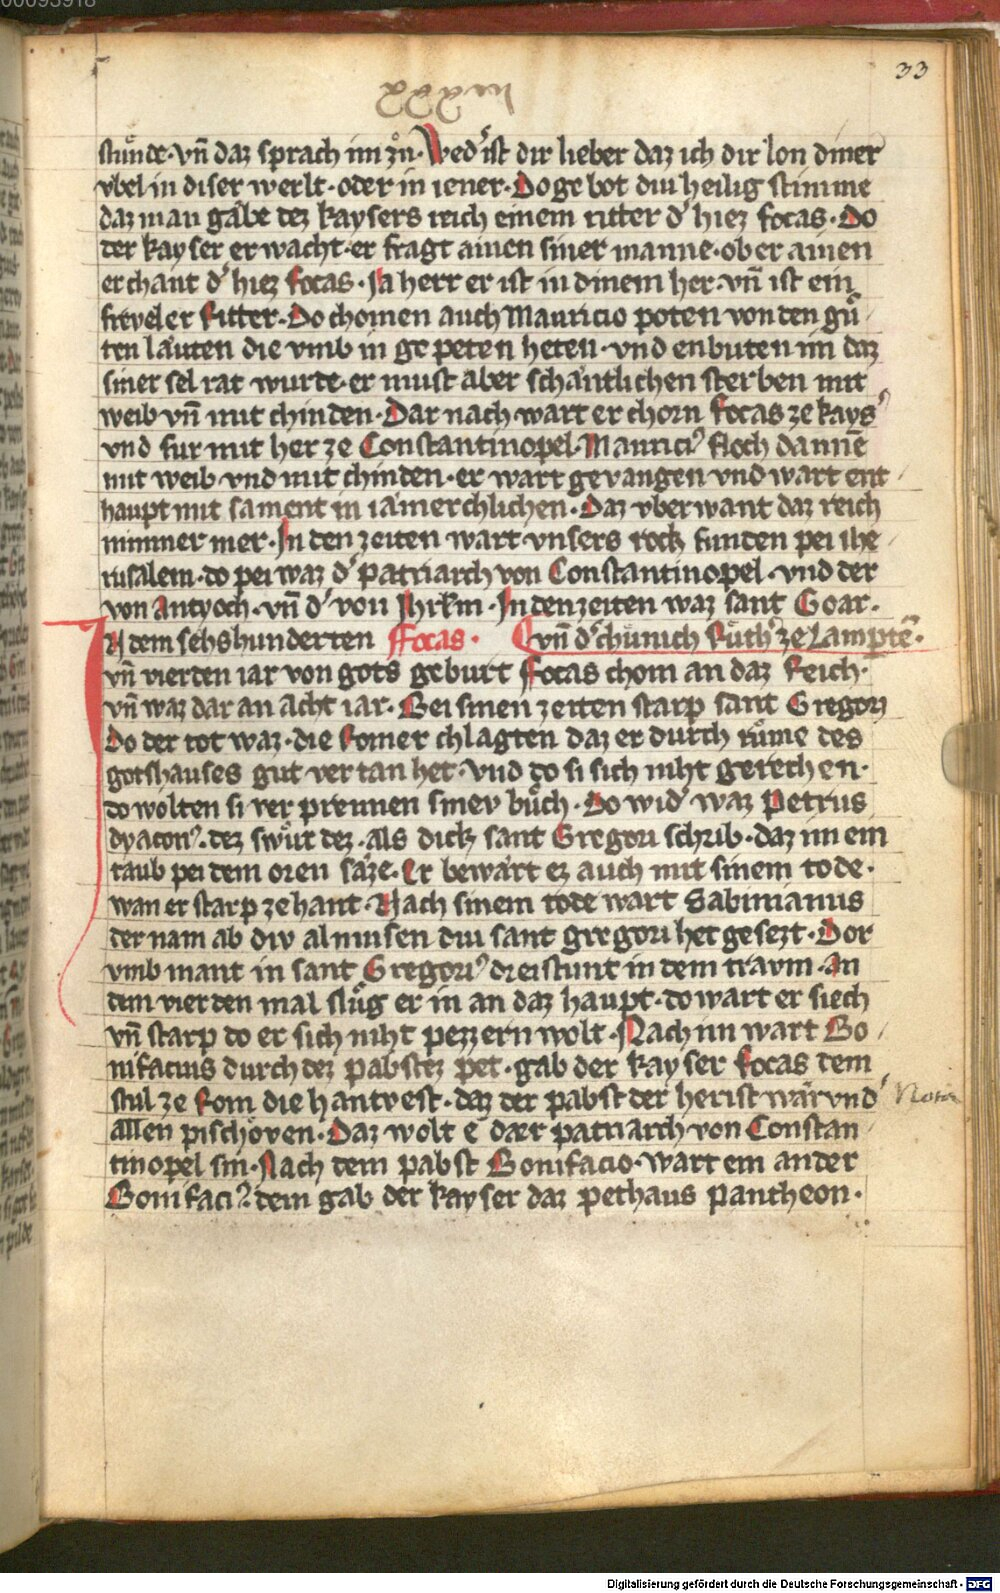 00093918
33
stuͦnde · vn̄ daz sprach im zuͦ · Wedˀ ist dir lieber daz ich dir lon diner
vbel in diser werlt · oder in iener · Do ge bot diu heilig stimme
daz man gaͤbe dez kaysers reich einem ritter dˀ hiez focas · Do
der kayser er wacht · er fragt ainen siner manne · ob er ainen
erchant dˀ hiez focas · Ja herr er ist in dinem her · vn̄ ist ein
freveler Ritter · Do chomen auch Mauricio poten von den guͦ
ten laͤuten die vmb in ge peten heten · vnd enbuten im daz
siner sel rat wurde · er must aber schaͤntlichen sterben mit
weib vn̄ mit chinden · Dar nach wart er chorn focas ze kaysˀ
vnd fur mit her ze Constantinopel · Mauriciꝰ floch dannē
mit weib vnd mit chinden · er wart gevangen vnd wart ent
haupt mit sament in iaͤmerchlichen · Daz vber want daz reich
nimmer mer · In den zeiten wart vnsers rock funden pei ihe
rusalem · do pei waz dˀ patriarch von Constantinopel · vnd der
von Antyoch · vn̄ dˀ von Jhrl̄m · In den zeiten waz sant Goar ·
In dem sehs hunderten Focas · vn̄ dˀ chuͤnich Ruͦthˀ ze Lamptē ·
vn̄ vierden iar von gots geburt Focas chom an daz Reich ·
vn̄ waz dar an acht iar · Bei sinen zeiten starp sant Gregory
Do der tot waz · die Romer chlagten daz er durch ruͦme des
gotshauses gut ver tan het · vnd do si sich niht gerechen ·
do wolten si ver prennen sinev buͦch · Do widˀ waz Petrus
dyaconꝰ · dez swuͦr dez · als dick sant Gregori schrib · daz im ein
taub pei dem oren saͤze · Er bewaͤrt ez auch mit sinem tode ·
wan er starp ze hant · Nach sinem tode wart Sabinianus
der nam ab div almusen diu sant gregori het gesezt · Dor
vmb mant in sant Gregoriꝰ dreistunt in dem travm · An
dem vierden mal sluͦg er in an daz haupt · do wart er siech
vn̄ starp do er sich niht pezzern wolt · Nach im wart Bo
nifacius durch dez pabstez pet · gab der kayser focas dem
stul ze Rom die hantvest · daz der pabst der herist waͤr vndˀ
Nota
allen pischoven · Daz wolt e der patriarch von Constan
tinopel sin · Nach dem pabst Bonifacio · wart ein ander
Bonifaciꝰ dem gab der kayser daz pethaus pantheon ·
Digitalisierung gefördert durch die Deutsche Forschungsgemeinschaft - DFG